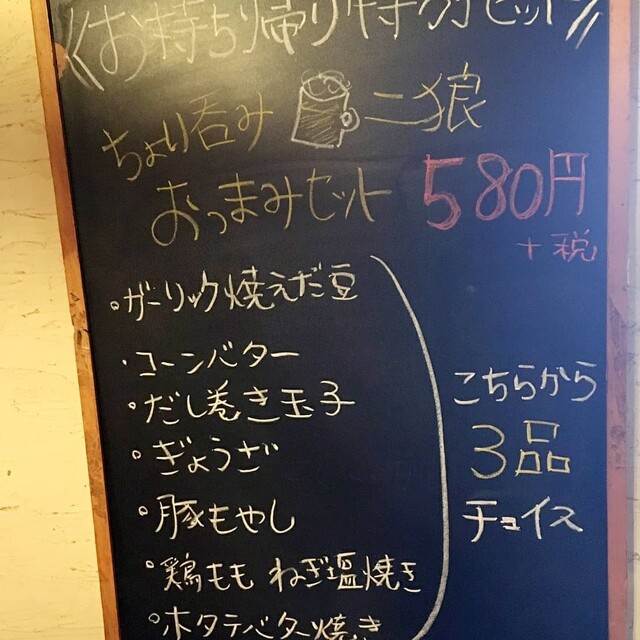 《お持ち帰り特別セット》
ちょり呑み 二狼
おつまみセット 580円
+税
・ガーリック焼えだ豆
・コーンバター
・だし巻き玉子
・ぎょうざ
・豚もやし
・鶏もも ねぎ塩焼き
・ホタテバター焼き
こちらから
3品
チョイス